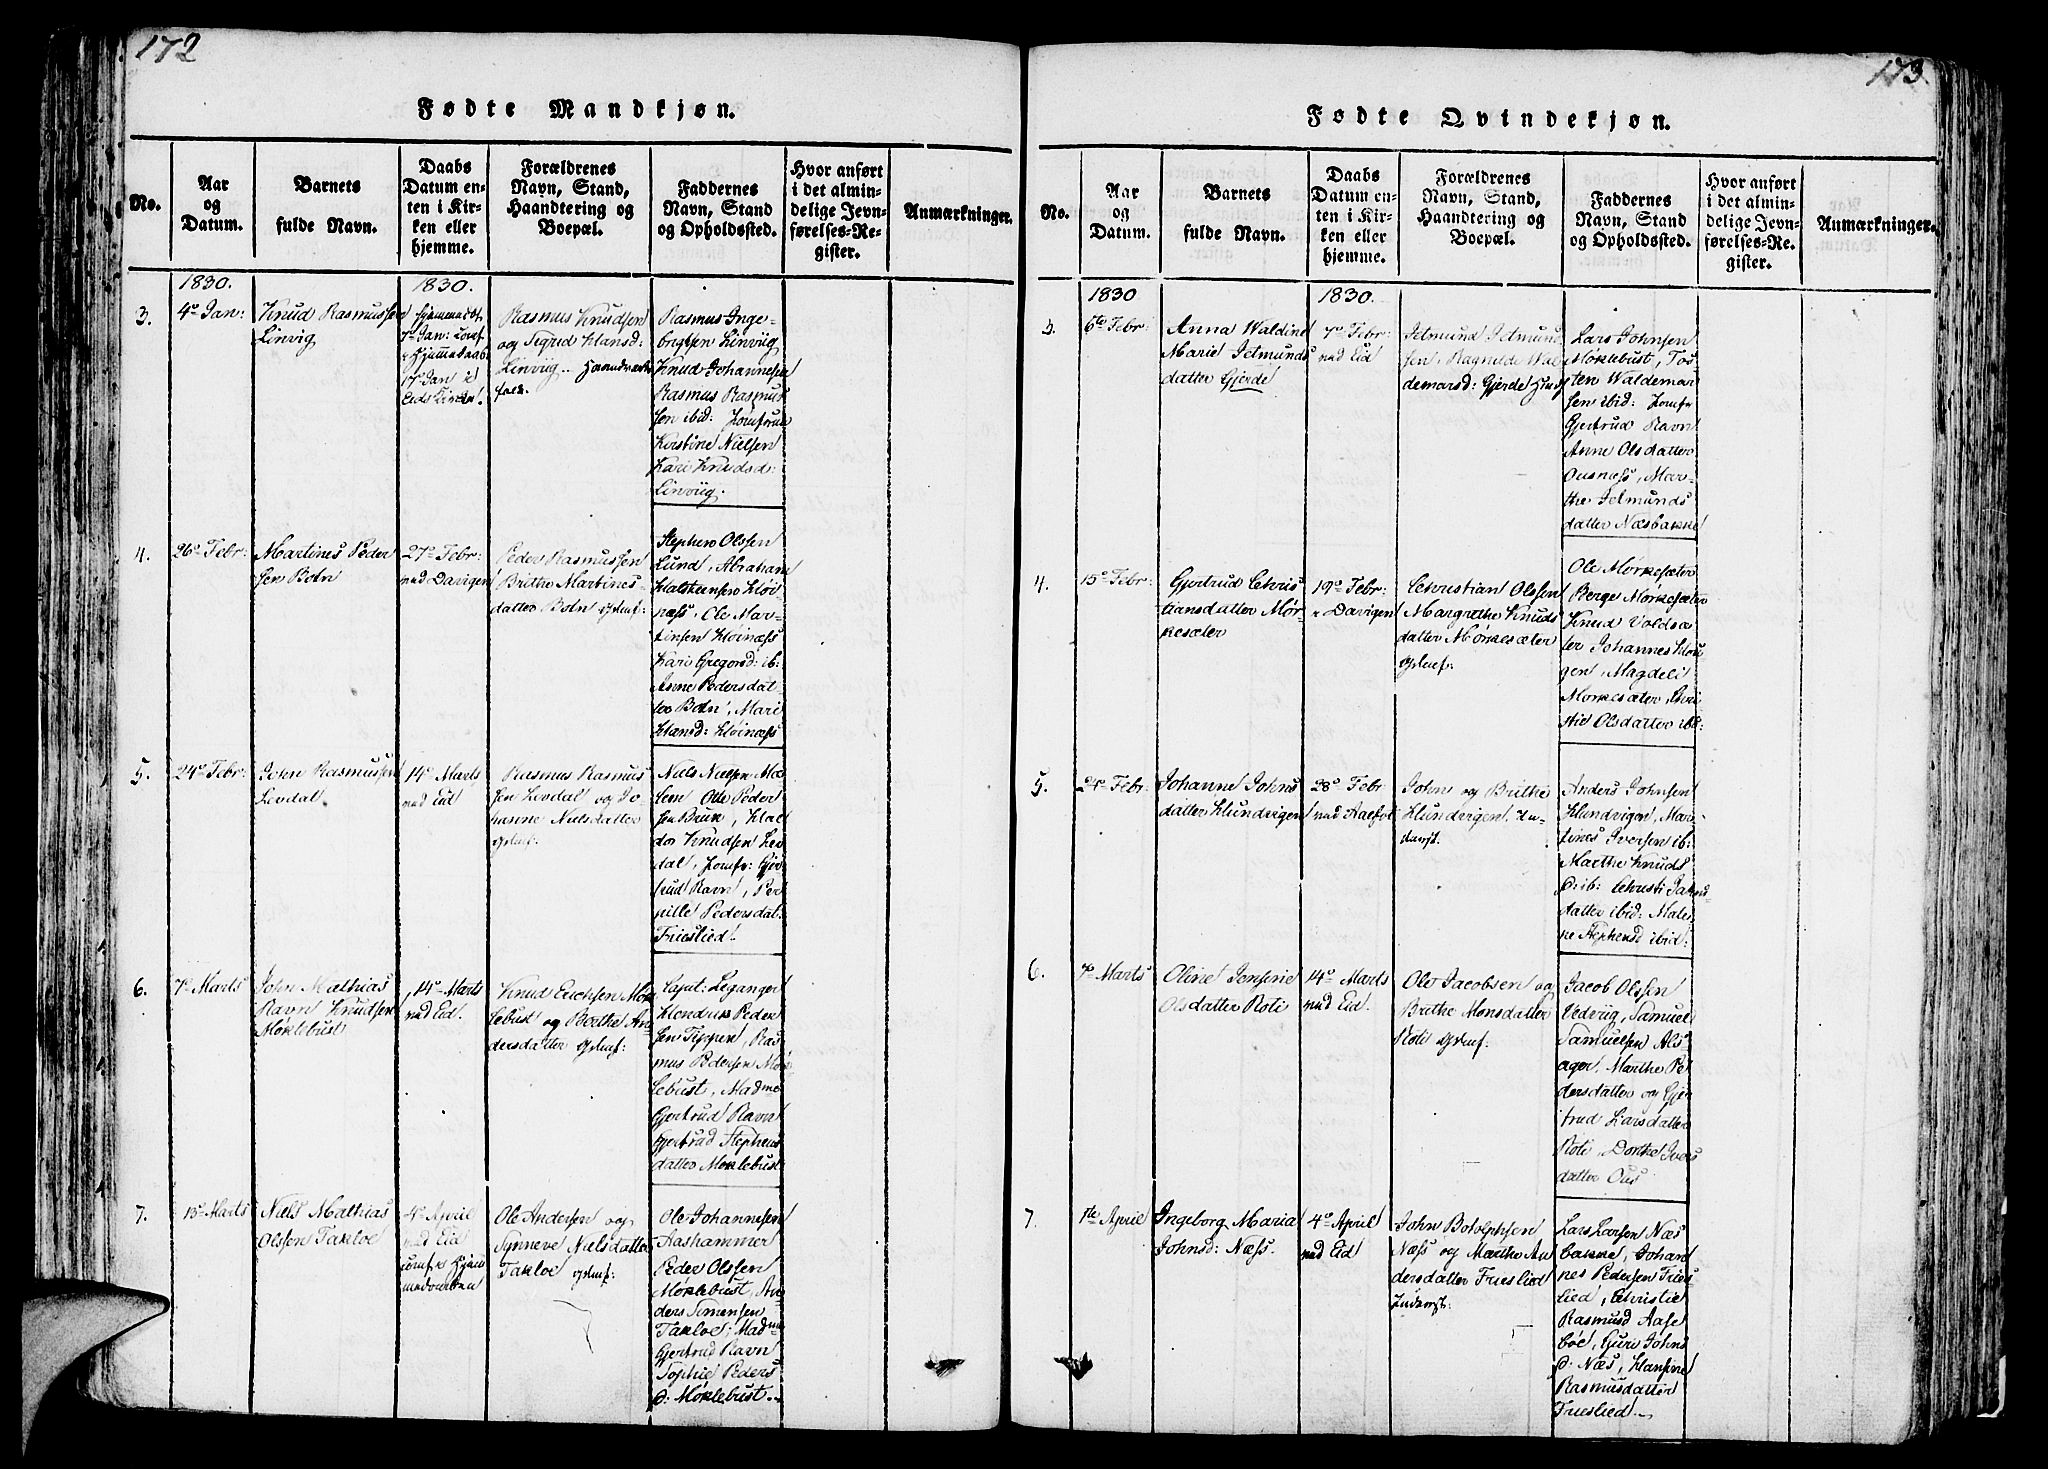 172
Fødte Mandkjøn.
No.
Aar
og
Datum.
Barnets
fulde Navn.
Daabs
Datum en-
ten i Kir-
ken eller
hjemme.
Forældrenes
Navn, Stand,
Haandtering og
Boepæl.
Faddernes
Navn, Stand
og Opholdssted.
Hvor anført
i det almin-
delige Jevn-
førelses-Re-
gister.
Anmærkninger.
1830.
1830.
3.
4de Jan:
Knud Rasmussen
Linvig
7de Jan:
17de Jan i
Rasmus Knudsen
og Sigrid Hansd:
Linviig.
Rasmus Inge-
brigtsen Linviig
Knud Johannesen
Rasmus Rasmus
sen ibid: Jomfrue
Kirstine Nielsen
Kari Knudsd:
Linviig.
4.
26de Febr:
Martines Peder
sen Botn
27de Febr:
ved Davigen
Peder Rasmussen
Brithe Martines
datter Botn
Stephen Olssen
Lund, Abraham
næss, Ole Mar-
tinsen Høinæss
Kari Gregorsd: ib:
Anne Pedersdat-
ter Botn, Mari
Hansd: Høinæss
5.
24de Febr:
John Rasmussen
Levdal
14de Marts
ved Eid
Rasmus Rasmus
sen Levdal og Jo
hanne Nielsdatter
Niels Nielsen
sen Ole Peder
sen Bruk, Hal
dor Knudsen Lev
dal, Jomfr: Gjer
trud Ravn, Per
nille Pedersdat:
Frieslied.
6.
7de Marts
John Mathias
Ravn Knudsen
Møklebust
14de Marts
ved Eid.
Knud Erichsen Møk
lebust og Berthe An
dersdatter
Capt: Leganger
Hendrik Peder
sen Tippen, Ras
mus Pedersen Møk
lebust, Madme
Gjertrud Ravn
Gjertrud Stephens
datter Møklebust
7.
13de Marts
Niels Mathias
Olssen Takloe
4de April
ved Eid
Ole Andersen og
Synneve Nielsdatter
Takloe
Ole Johannesen
Aashammer
Peder Olssen
Møklebust, An
ders Simensen
Takloe, Madme
Gjertrud Ravn
Sophie Peders
d: Møklebust.
173.
Fødte Qvindekjøn.
No.
Aar
og
Datum.
Barnets
fulde Navn.
Daabs
Datum en-
ten i Kir-
ken eller
hjemme.
Forældrenes
Navn, Stand,
Haandtering og
Boepæl.
Faddernes
Navn, Stand
og Opholdssted.
Hvor anført
i det almin-
delige Jevn-
førelses-Re-
gister.
Anmærkninger.
1830
1830.
3.
6te Febr:
Anna Waldine
Marie Jetmunds
datter Gjerde
7de Febr:
ved Eid
Jetmund Jetmund
sen, Ragnilde Wal
demarsd: Gjerde
Lars Johnsen
Møklebust, Tos
ten Waldemar
sen ibid: Jomfr
Gjertrud Ravn
Anne Olsdatter
Ousness, Mar-
the Jetmunds
datter Næsbakke
4.
15de Febr:
Gjertrud Chris
tiansdatter Mør
kesæter
19de Febr:
Davigen
Christian Olssen
Margrethe Knuds
datter Mørkesæter
Ole Mørkesæter
Berge Mørkesæter
Knud Voldsæ
ter Johannes
gen, Magdeli
Mørkesæter, Chri
stie Olsdatter ib:
5.
24de Febr:
Johanne Johns
datter Hundvigen
28de Febr
ved Aalfot
John og Brithe
Hundvigen, In-
derst.
Anders Johnsen
Hundvigen, Mar-
tines Iversen ib:
Marthe Knuds
d: ib: Christi
datter ibid: Male-
ne Stephensd ibid:
6.
7de Marts
Oline Jensine
Olsdatter Roti
14de Marts
ved Eid.
Ole Jacobsen og
Brithe Monsdatter
Roti
Jacob Olssen
Vedvig, Samuel
Samuelsen Als-
ager, Marthe Pe
dersdatter og Gjer
trud Larsdatter
Roti, Dorthe Ivers
datter Ous
7.
1te April
Ingeborg Maria
Johnsd: Næss.
4de April
ved Eid
John Botolphsen
Næss og Marthe An
dersdatter Frieslied
Inderst:
Lars Larsen Næs
bakke, Johan
nes Pedersen Fries
lied, Christie
Rasmusd Aase
bøe, Guri Johns
d: Næs, Hansine
Rasmusdatter
Frieslied.